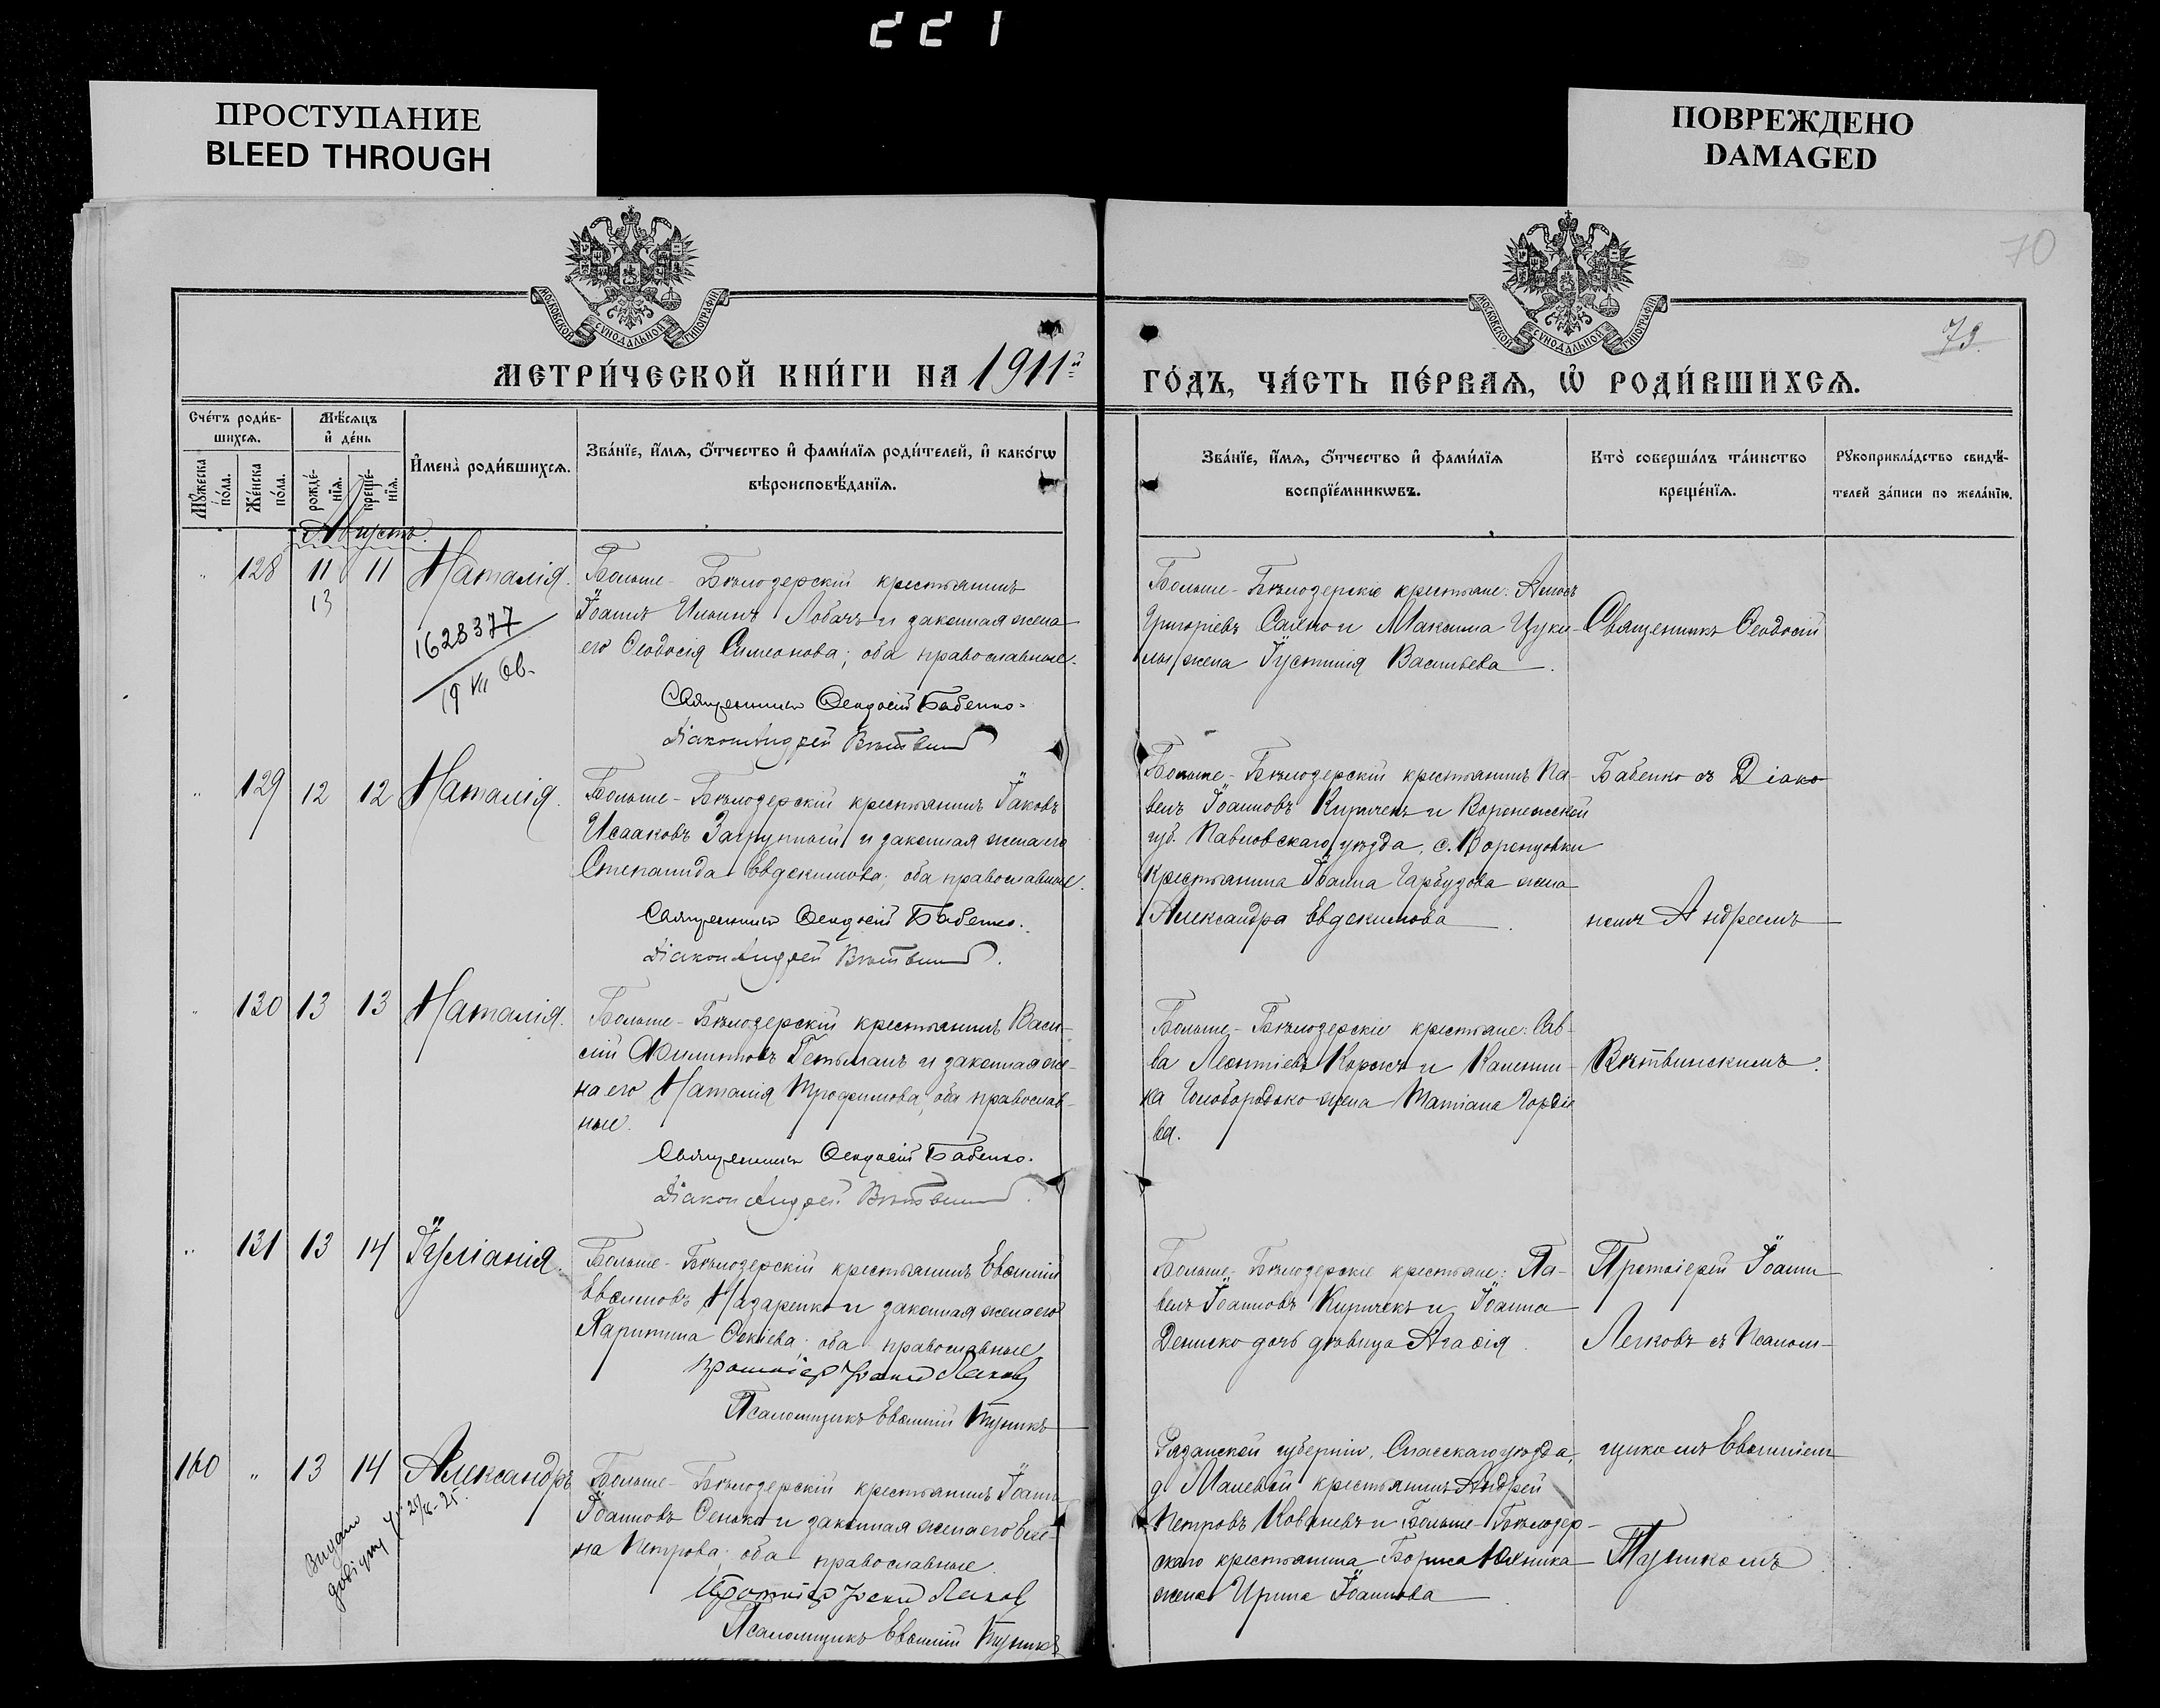 221
ПРОСТУПАНИЕ
BLEED THROUGH
ПОВРЕЖДЕНО
DAMAGED
70
МОСКОВСКОЙ СУНОДАЛЬНОЙ ТИПОГРАФІИ
МОСКОВСКОЙ СУНОДАЛЬНОЙ ТИПОГРАФІИ
73.
МЕТРИ́ЧЕСКОЙ КНИ́ГИ НА 1911й
ГО́ДЪ, ЧА́СТЬ ПЕ́РВАѦ, Ѡ҆ РОДИ́ВШИХСѦ.
Сче́тъ роди́в-
шихсѧ.
Мꙋ́жеска по́ла.
Же́нска по́ла.
Мѣ́сѧцъ
и҆ де́нь
рожде́-
нїѧ.
креще́-
нїѧ.
И҆мена̀ роди́вшихсѧ.
Зва́нїе, и҆́мѧ, ѻ҆́тчество и҆ фами́лїѧ роди́телей, и҆ како́гѡ
вѣроисповѣ́данїѧ.
Зва́нїе, и҆́мѧ, ѻ҆́тчество и҆ фами́лїѧ
воспрїе́мникѡвъ.
Кто̀ соверша́лъ та́инство
креще́нїѧ.
Рꙋкоприкла́дство свидѣ́-
телей за́писи по жела́нїю.
Августъ.
" 128 11 11 Наталія.
13
1628377
19 VII
Больше-Бѣлозерскій крестьянинъ
Іоаннъ Ильинъ Лобачъ и законная жена
его Ѳеодосія Симеонова; оба православные.
Священникъ Ѳеодосій Бабенко.
Діаконъ Андрей Вѣтвинскій
Больше-Бѣлозерскіе крестьяне: Амосъ
Григоріевъ Сални и Максима Цуки-
лы жена Іустинія Васильева.
Священникъ Ѳеодосій
" 129 12 12 Наталія.
Больше-Бѣлозерскій крестьянинъ Іаковъ
Исааковъ Загрунный и законная жена его
Степанида Евдокимова; оба православные.
Священникъ Ѳеодосій Бабенко.
Діаконъ Андрей Вѣтвинскій.
Больше-Бѣлозерскій крестьянинъ Па-
велъ Іоанновъ Киричекъ и Воронежской
губ. Павловскаго уѣзда, с. Воронцовки
крестьянина Іоанна Гарбузова жена
Александра Евдокимова.
Бабенко съ Діако
номъ Андреемъ
" 130 13 13 Наталія.
Больше-Бѣлозерскій крестьянинъ Васи-
лій Филипповъ Гетьманъ и законная же-
на его Наталія Трофимова, оба православ-
ные.
Священникъ Ѳеодосій Бабенко.
Діаконъ Андрей Вѣтвинскій.
Больше-Бѣлозерскіе крестьяне: Сав-
ва Леонтіевъ Коржъ и Каленни-
ка Голобородько жена Татіана Гордіе
ва.
Вѣтвинскимъ.
" 131 13 14 Іуліанія.
Больше-Бѣлозерскій крестьянинъ Евѳимій
Евѳимовъ Назаренко и законная жена его
Харитина Сокіева; оба православные
Протоіерей Іоаннъ Легковъ
Псаломщикъ Евѳимій Тушикъ
Больше-Бѣлозерскіе крестьяне: Па-
велъ Іоанновъ Киричекъ и Іоанна
Дениско дочь дѣвица Агаѳія.
Протоіерей Іоаннъ
Легковъ съ Псалом-
160 " 13 14 Александръ
Видано
довідку
Больше-Бѣлозерскій крестьянинъ Іоаннъ
Іоанновъ Сенько и законная жена его Еле-
на Петрова; оба православные.
Протоіерей Іоаннъ Легковъ
Псаломщикъ Евѳимій Тушикъ
Рязанской губерніи, Спасскаго уѣзда,
д. Малевой крестьянинъ Андрей
Петровъ Ковалевъ и Больше-Бѣлозер-
скаго крестьянина Бориса Юхника
жена Ирина Іоаннова.
щикомъ Евѳиміемъ
Тушикомъ